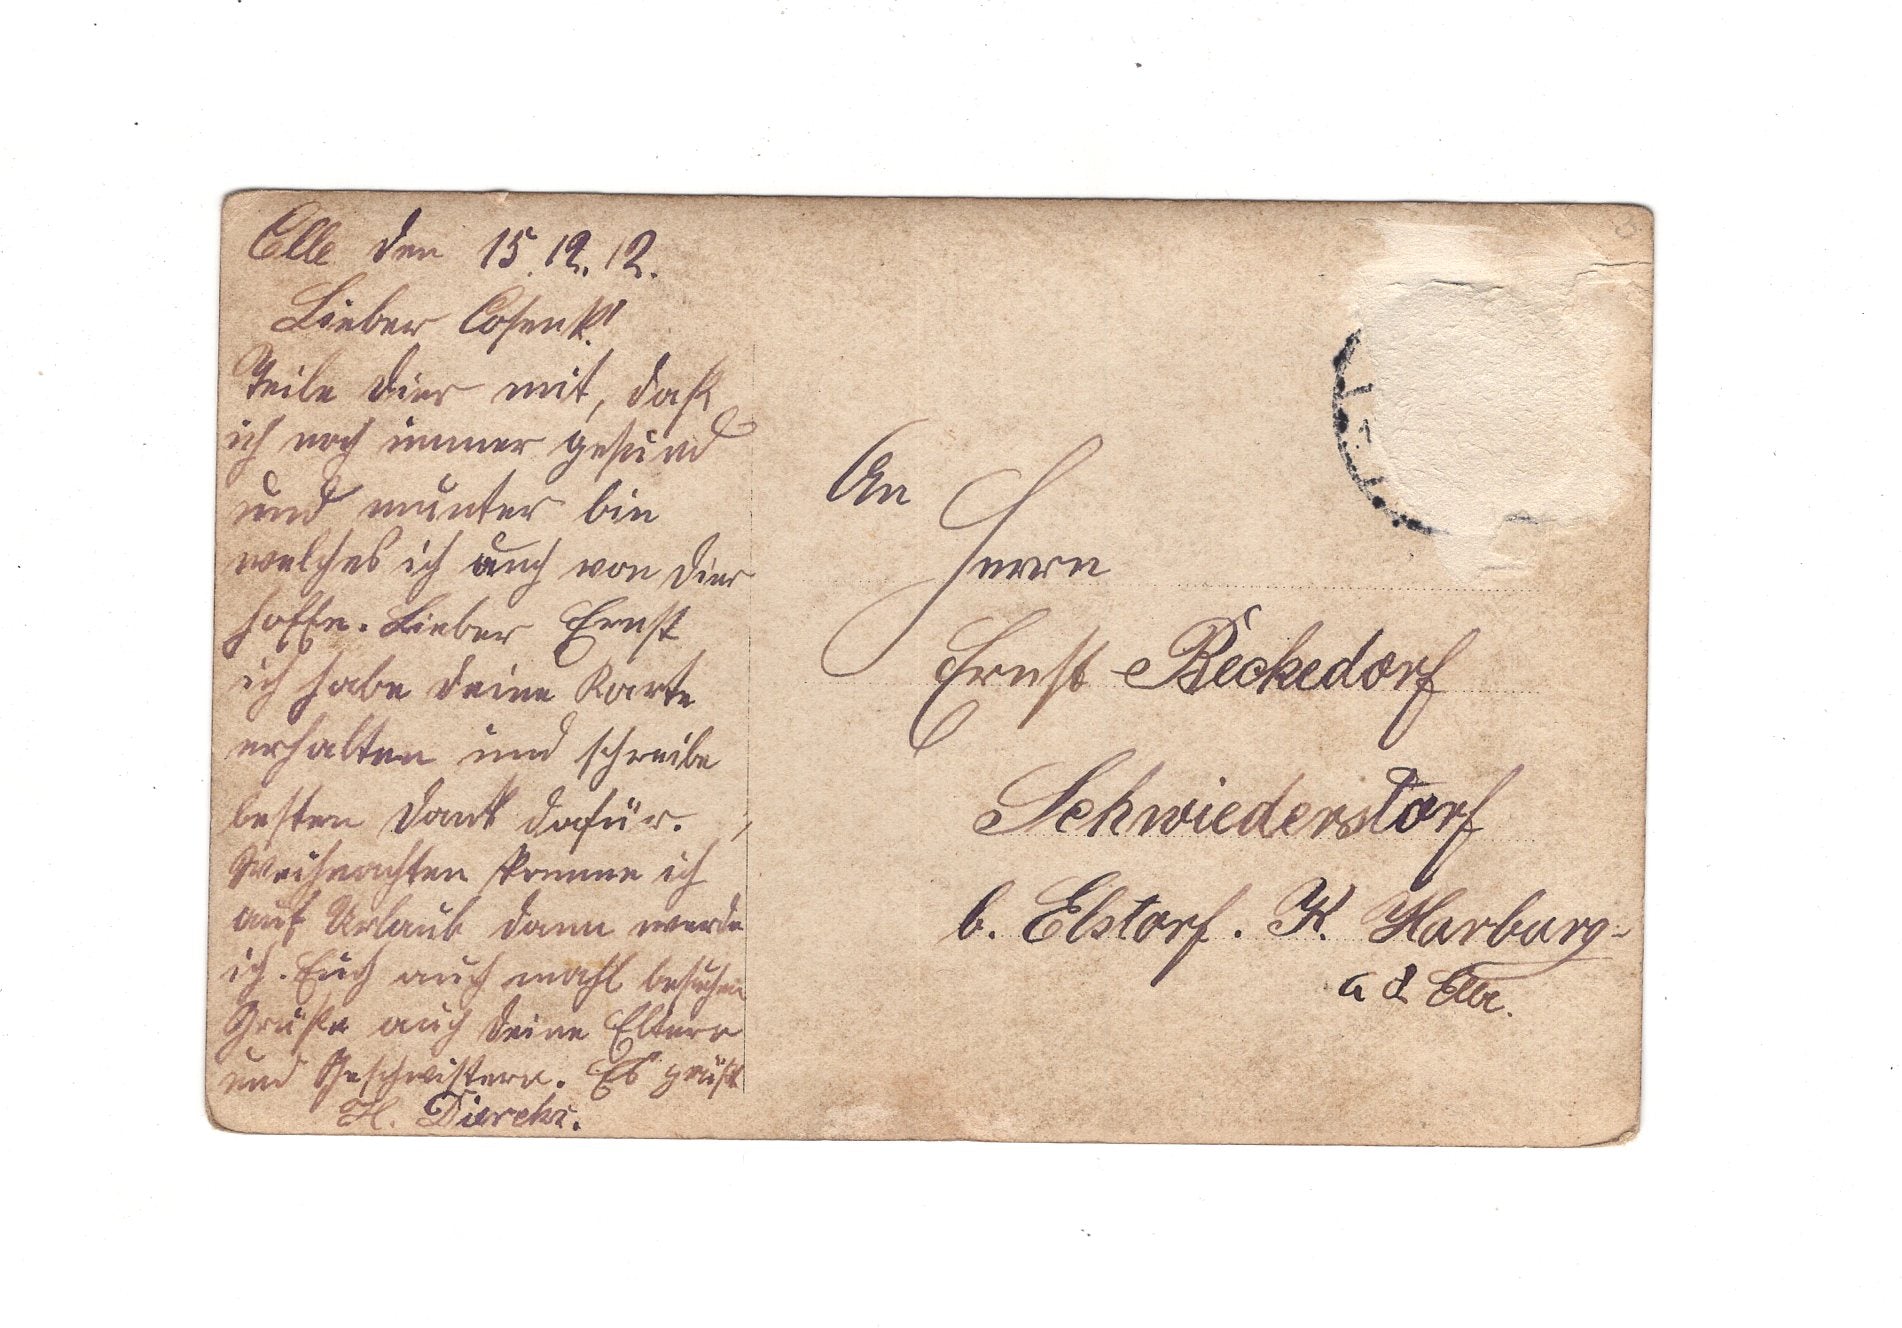 Celle den 15.12.12.
Lieber Cosenk!
Teile dier mit, daß
ich noch immer gesund
und munter bin
welches ich auch von dier
hoffe. Lieber Ernst
ich habe deine Karte
erhalten und schreibe
besten Dank dafür.
Weihnachten komme ich
auf Urlaub dann werde
ich Euch auch mahl besuchen
Grüße auch deine Eltern
und Geschwistern. Es grüßt
H. Diercks.
An
Herrn
Ernst Beckedorf
Schwiederstorf
b. Elstorf. K. Harburg
a d Elbe.